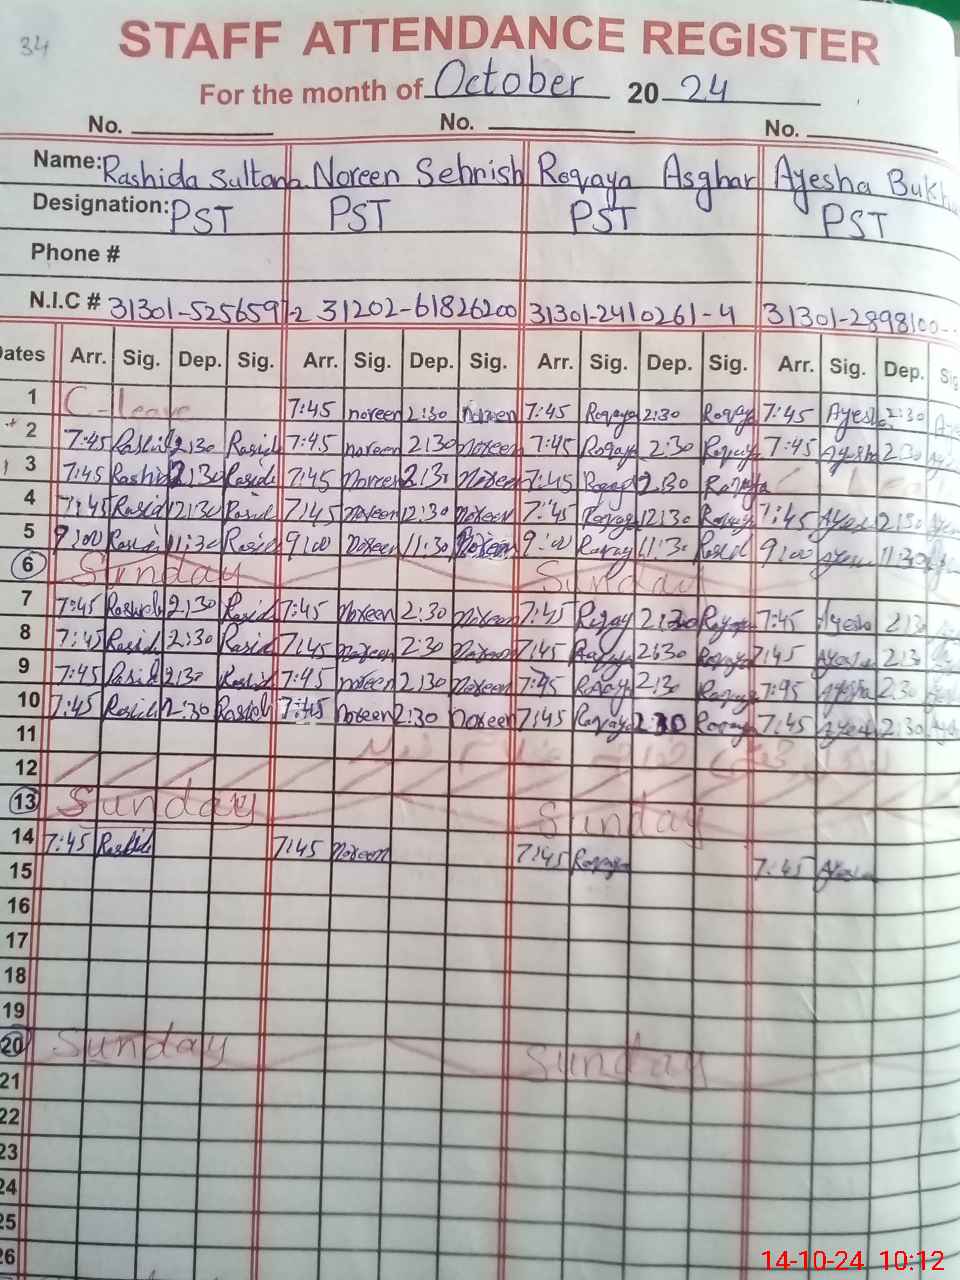 34
STAFF ATTENDANCE REGISTER
For the month of October 2024
No. No. No.
Name: Rashida Sultana Noreen Sehrish Roqaya Asghar Ayesha
Designation: PST PST PST PST
Phone #
N.I.C # 31301-5256597-2 31202-61826200 31301-2410261-4 31301-2898100-
Dates Arr. Sig. Dep. Sig. Arr. Sig. Dep. Sig. Arr. Sig. Dep. Sig. Arr. Sig. Dep. Sig
1 C-leave 7:45 noreen 2:30 noreen 7:45 Roqaya 2:30 Roqaya 7:45 Ayesha 2:30
2 7:45 Rashid 2:30 Rasid 7:45 noreen 2:30 noreen 7:45 Roqaya 2:30 Roqaya 7:45 Ayesha 2:30
3 7:45 Rashid 2:30 Rasid 7:45 Noreen 2:30 Noreen 7:45 Roqaya 2:30 Roqaya
4 7:45 Rasid 2:30 Rasid 7:45 Noreen 2:30 Noreen 7:45 Roqaya 2:30 Roqaya 7:45 Ayesha 2:30
5 9:00 Rasid 11:30 Rasid 9:00 Noreen 11:30 Noreen 9:00 Roqaya 11:30 9:00 Ayesha 11:30
6 Sunday Sunday
7 7:45 Rashid 2:30 Rasid 7:45 noreen 2:30 noreen 7:45 Roqaya 2:30 Roqaya 7:45 Ayesha 2:30
8 7:45 Rasid 2:30 Rasid 7:45 noreen 2:30 Noreen 7:45 Roqaya 2:30 Roqaya 7:45 Ayesha 2:30
9 7:45 Rasid 2:30 Rashid 7:45 noreen 2:30 Noreen 7:45 Roqaya 2:30 Roqaya 7:45 Ayesha 2:30
10 7:45 Rashid 2:30 Rashid 7:45 Noreen 2:30 Noreen 7:45 Roqaya 2:30 Roqaya 7:45 Ayesha 2:30
11
12
13 Sunday Sunday
14 7:45 Rashid 7:45 Noreen 7:45 Roqaya 7:45 Ayesha
15
16
17
18
19
20 Sunday Sunday
21
22
23
24
25
26
14-10-24 10:12